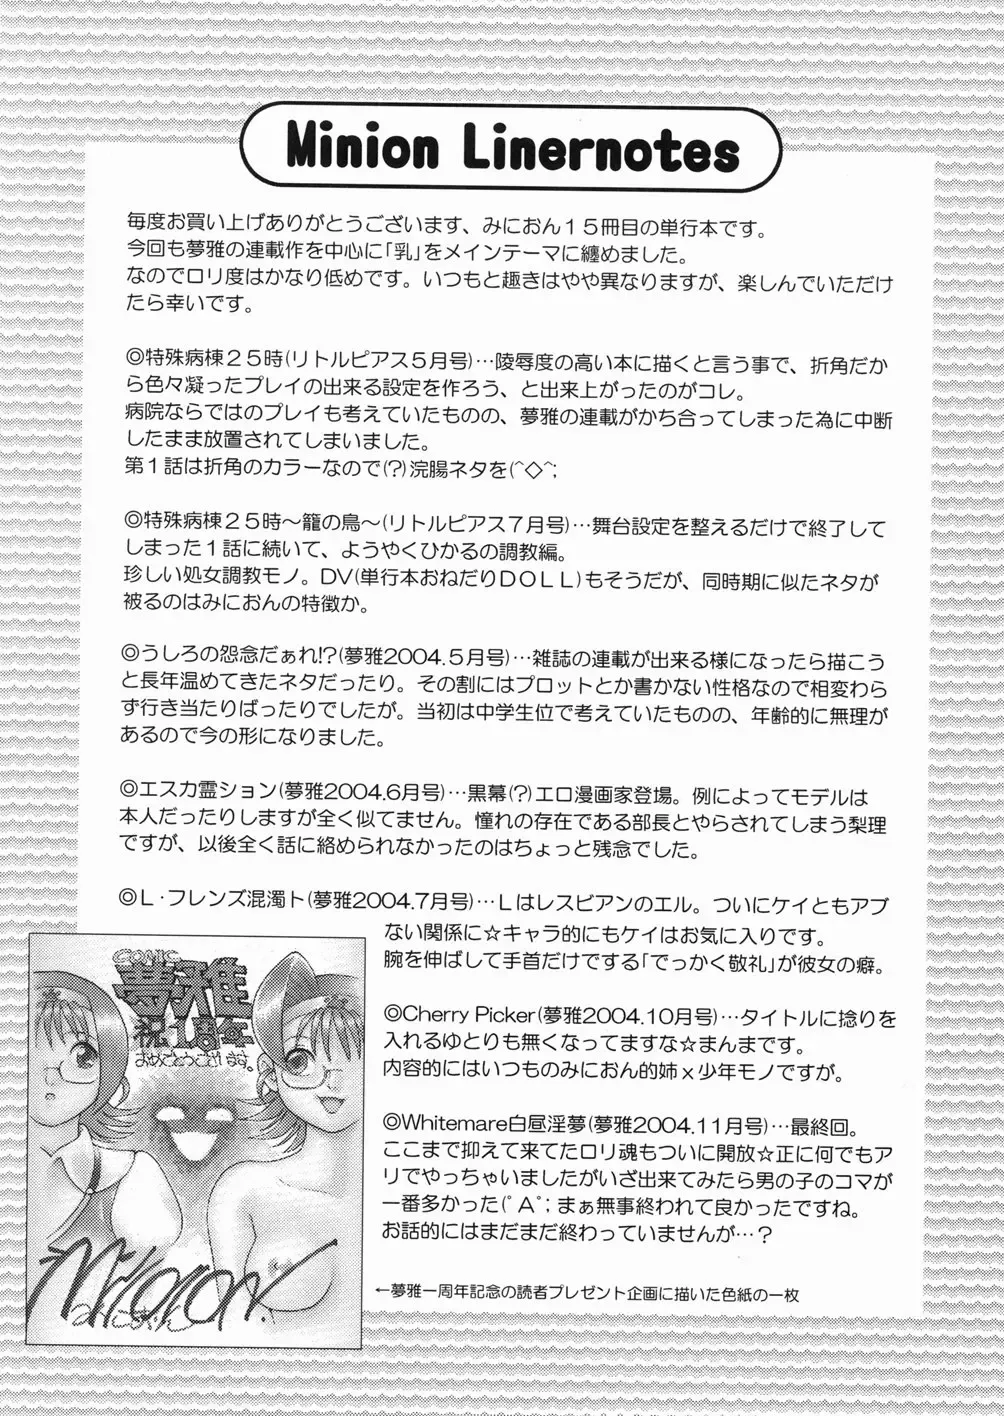 Minion Linernotes
毎度お買い上げありがとうございます、みにおん１５冊目の単行本です。
今回も夢雅の連載作を中心に「乳」をメインテーマに纏めました。
なのでロリ度はかなり低めです。いつもと趣きはやや異なりますが、楽しんでいただけ
たら幸いです。
◎特殊病棟２５時(リトルピアス５月号)…陵辱度の高い本に描くと言う事で、折角だか
ら色々凝ったプレイの出来る設定を作ろう、と出来上がったのがコレ。
病院ならではのプレイも考えていたものの、夢雅の連載がかち合ってしまった為に中断
したまま放置されてしまいました。
第１話は折角のカラーなので(?)浣腸ネタを(^◇^;
◎特殊病棟２５時～籠の鳥～(リトルピアス７月号)…舞台設定を整えるだけで終了して
しまった１話に続いて、ようやくひかるの調教編。
珍しい処女調教モノ。DV(単行本おねだりＤＯＬＬ)もそうだが、同時期に似たネタが
被るのはみにおんの特徴か。
◎うしろの怨念だぁれ!?(夢雅2004.５月号)…雑誌の連載が出来る様になったら描こう
と長年温めてきたネタだったり。その割にはプロットとか書かない性格なので相変わら
ず行き当たりばったりでしたが。当初は中学生位で考えていたものの、年齢的に無理が
あるので今の形になりました。
◎エスカ霊ション(夢雅2004.6月号)…黒幕(?)エロ漫画家登場。例によってモデルは
本人だったりしますが全く似てません。憧れの存在である部長とやらされてしまう梨理
ですが、以後全く話に絡められなかったのはちょっと残念でした。
◎Ｌ・フレンズ混濁ト(夢雅2004.7月号)…Ｌはレスビアンのエル。ついにケイともアブ
ない関係に☆キャラ的にもケイはお気に入りです。
腕を伸ばして手首だけでする「でっかく敬礼」が彼女の癖。
◎Cherry Picker(夢雅2004.10月号)…タイトルに捻りを
入れるゆとりも無くなってますな☆まんまです。
内容的にはいつものみにおん的姉ｘ少年モノですが。
◎Whitemare白昼淫夢(夢雅2004.11月号)…最終回。
ここまで抑えて来てたロリ魂もついに開放☆正に何でもア
リでやっちゃいましたがいざ出来てみたら男の子のコマが
一番多かった(ﾟAﾟ; まぁ無事終われて良かったですね。
お話的にはまだまだ終わっていませんが…？
COMIC
夢雅
祝1周年
おめでとうございます。
Minion
みにおん
←夢雅一周年記念の読者プレゼント企画に描いた色紙の一枚